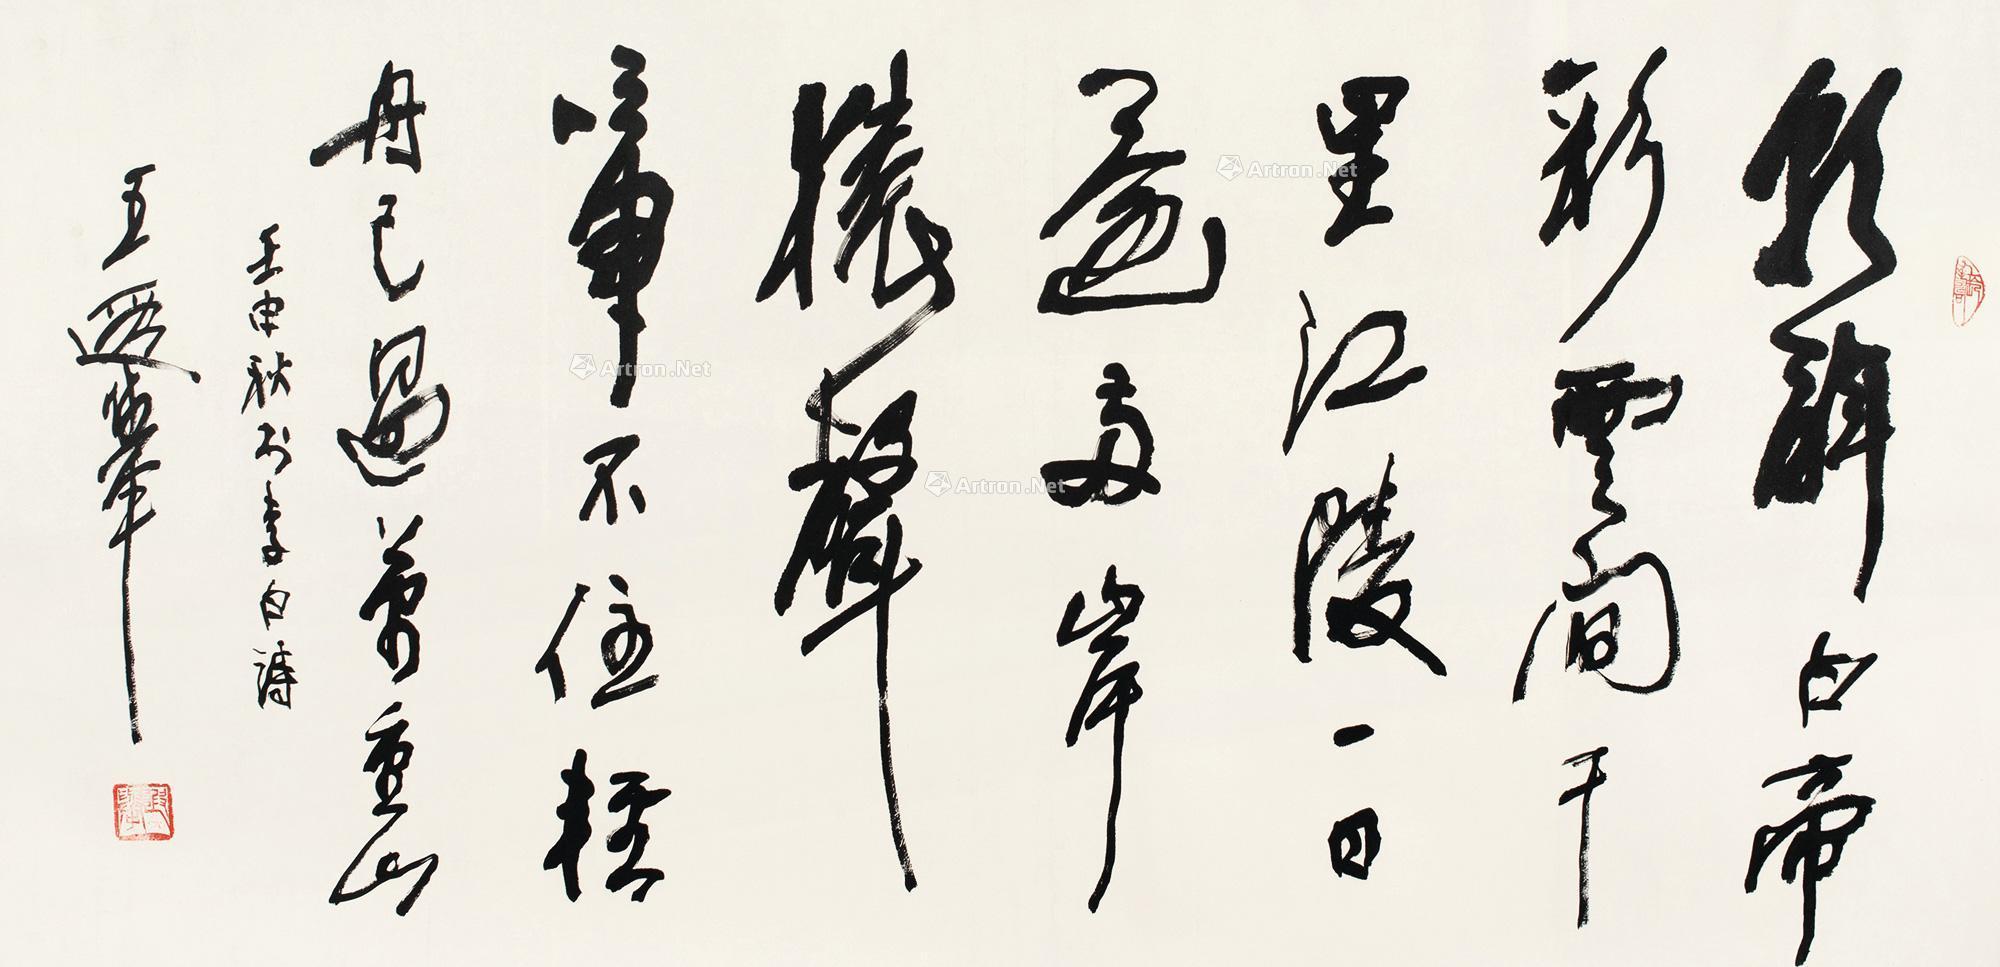 朝辭白帝
彩雲間千
里江陵一日
還兩岸
猿聲
啼不住輕
舟已過萬重山
壬申秋书李白詩
王遐舉
Artron.Net
Artron.Net
Artron.Net